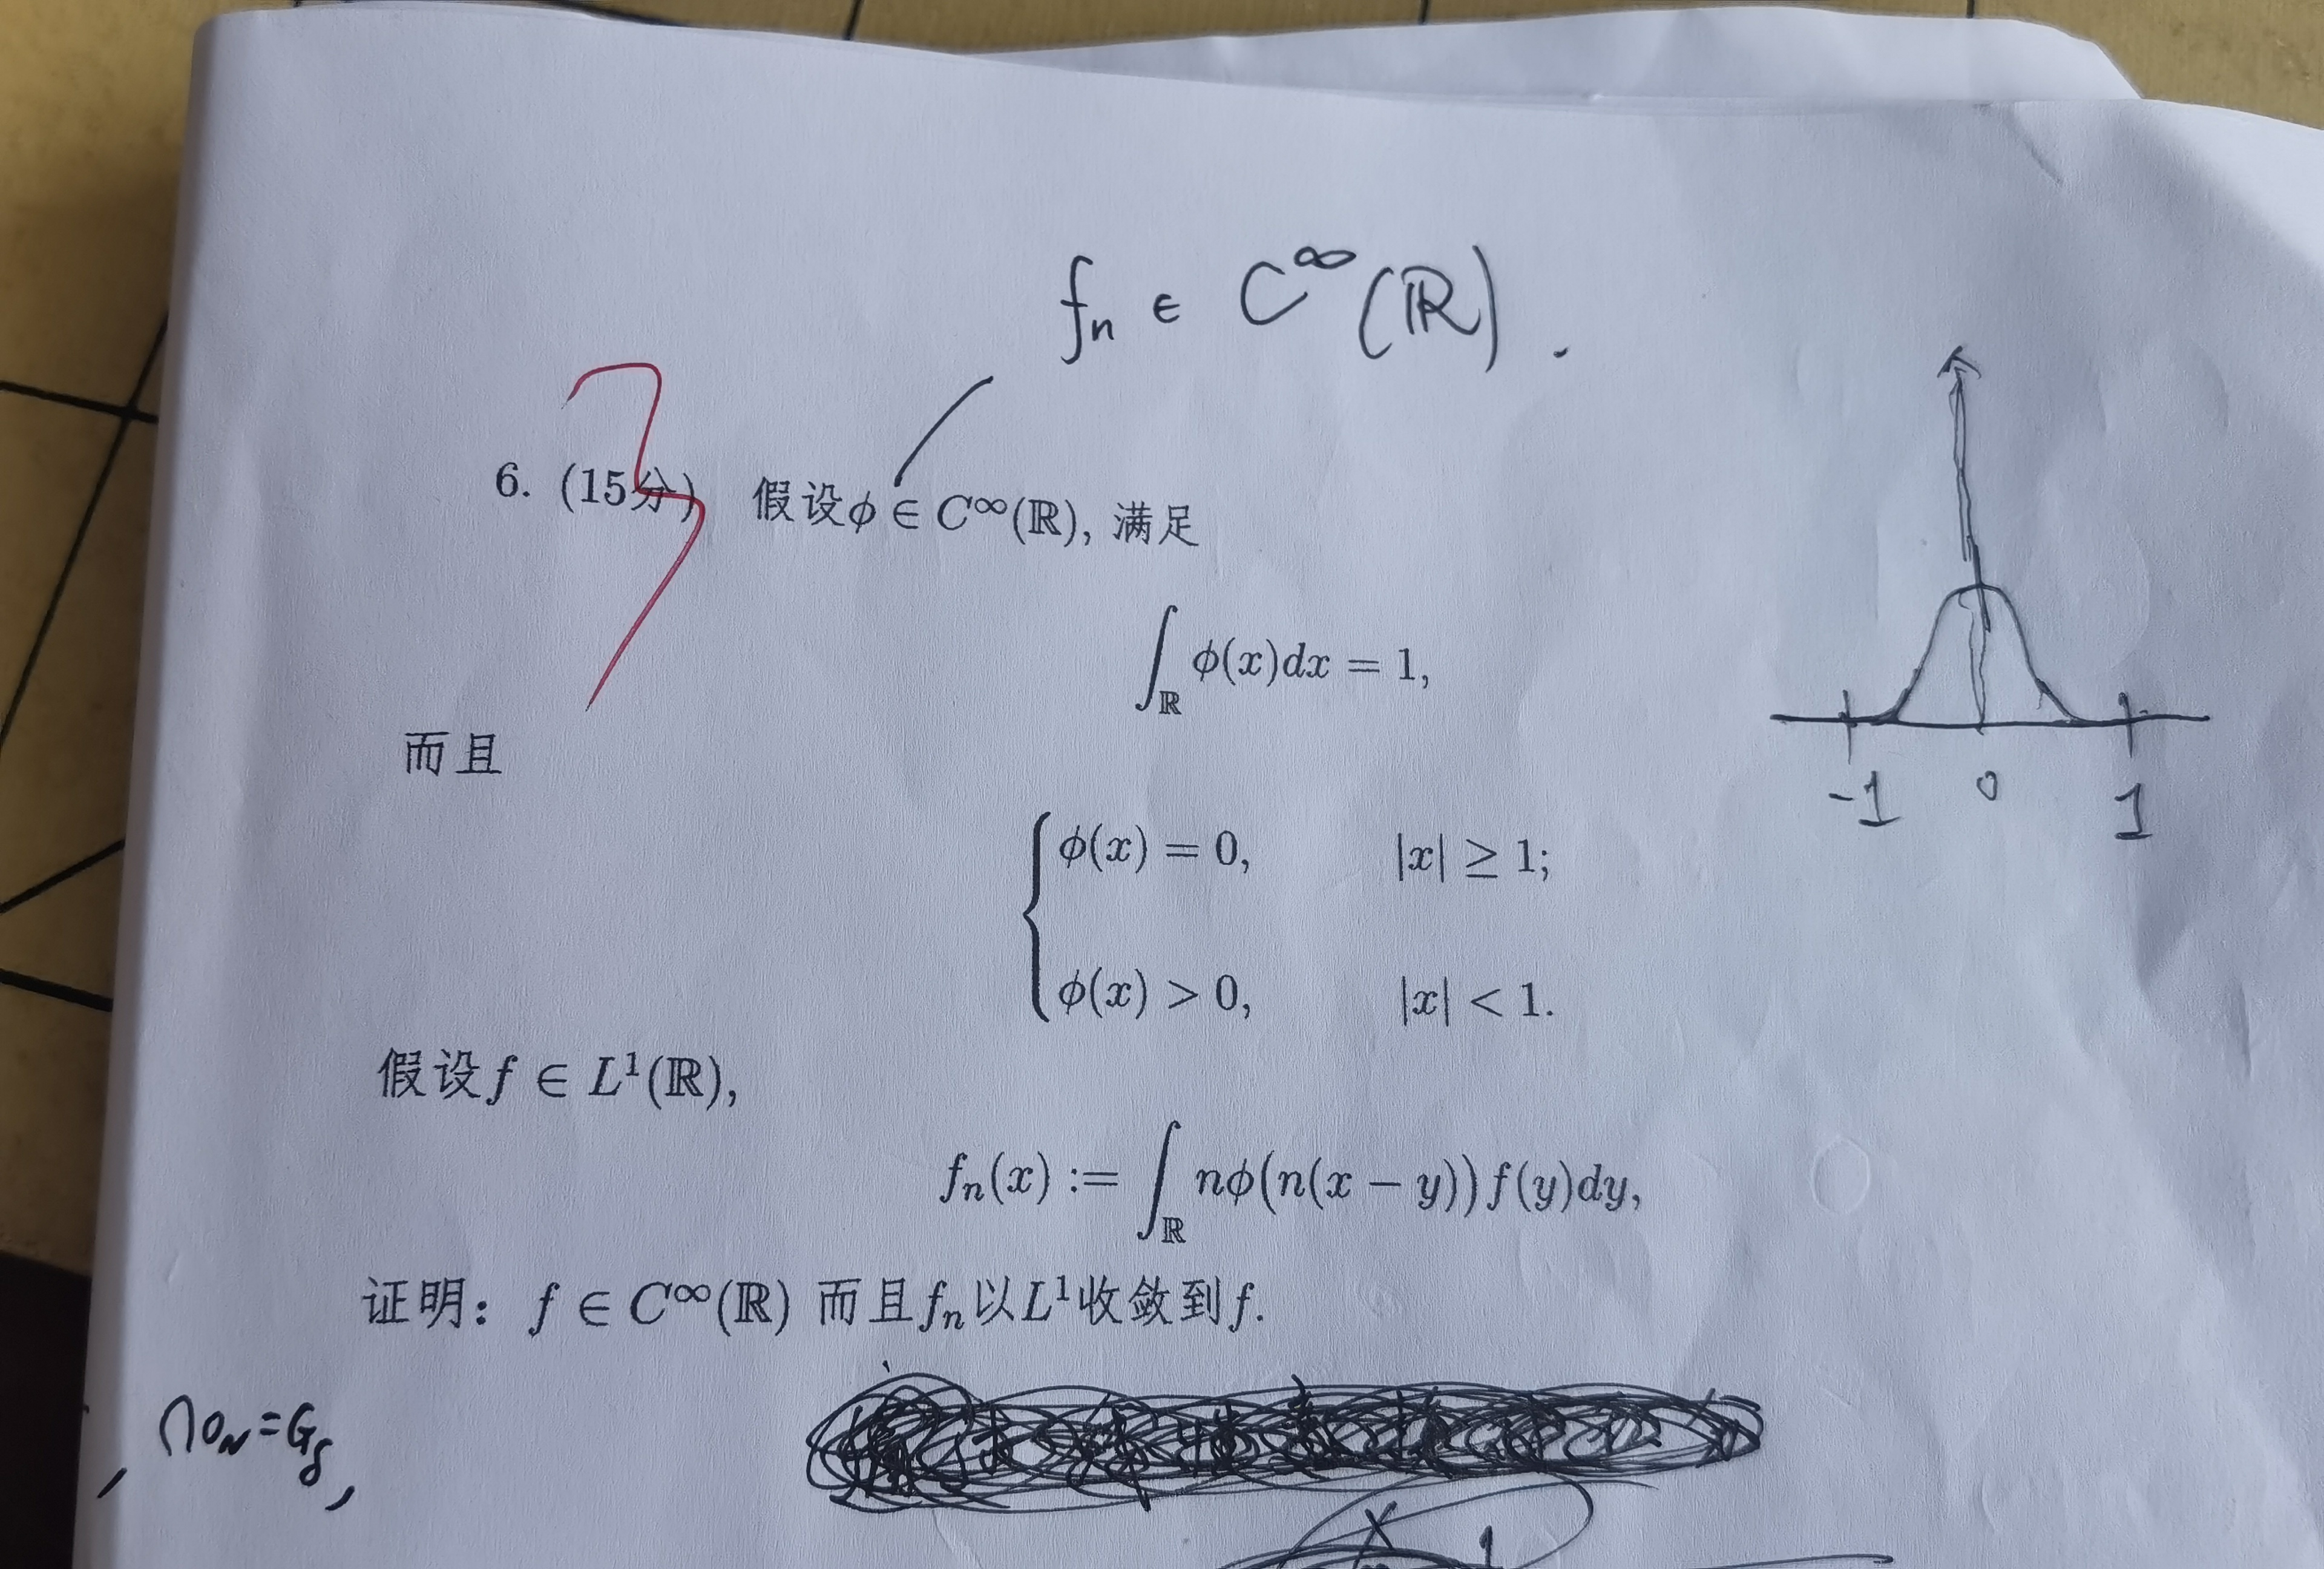 fₙ ∈ C^∞(ℝ).
3
6. (15分) 假设ϕ ∈ C^∞(ℝ), 满足
∫_ℝ ϕ(x)dx = 1,
而且
-1 0 1
ϕ(x) = 0, |x| ≥ 1;
ϕ(x) > 0, |x| < 1.
假设f ∈ L¹(ℝ),
fₙ(x) := ∫_ℝ nϕ(n(x − y))f(y)dy,
证明: f ∈ C^∞(ℝ) 而且fₙ以L¹收敛到f.
, ∩O_N=G_δ,